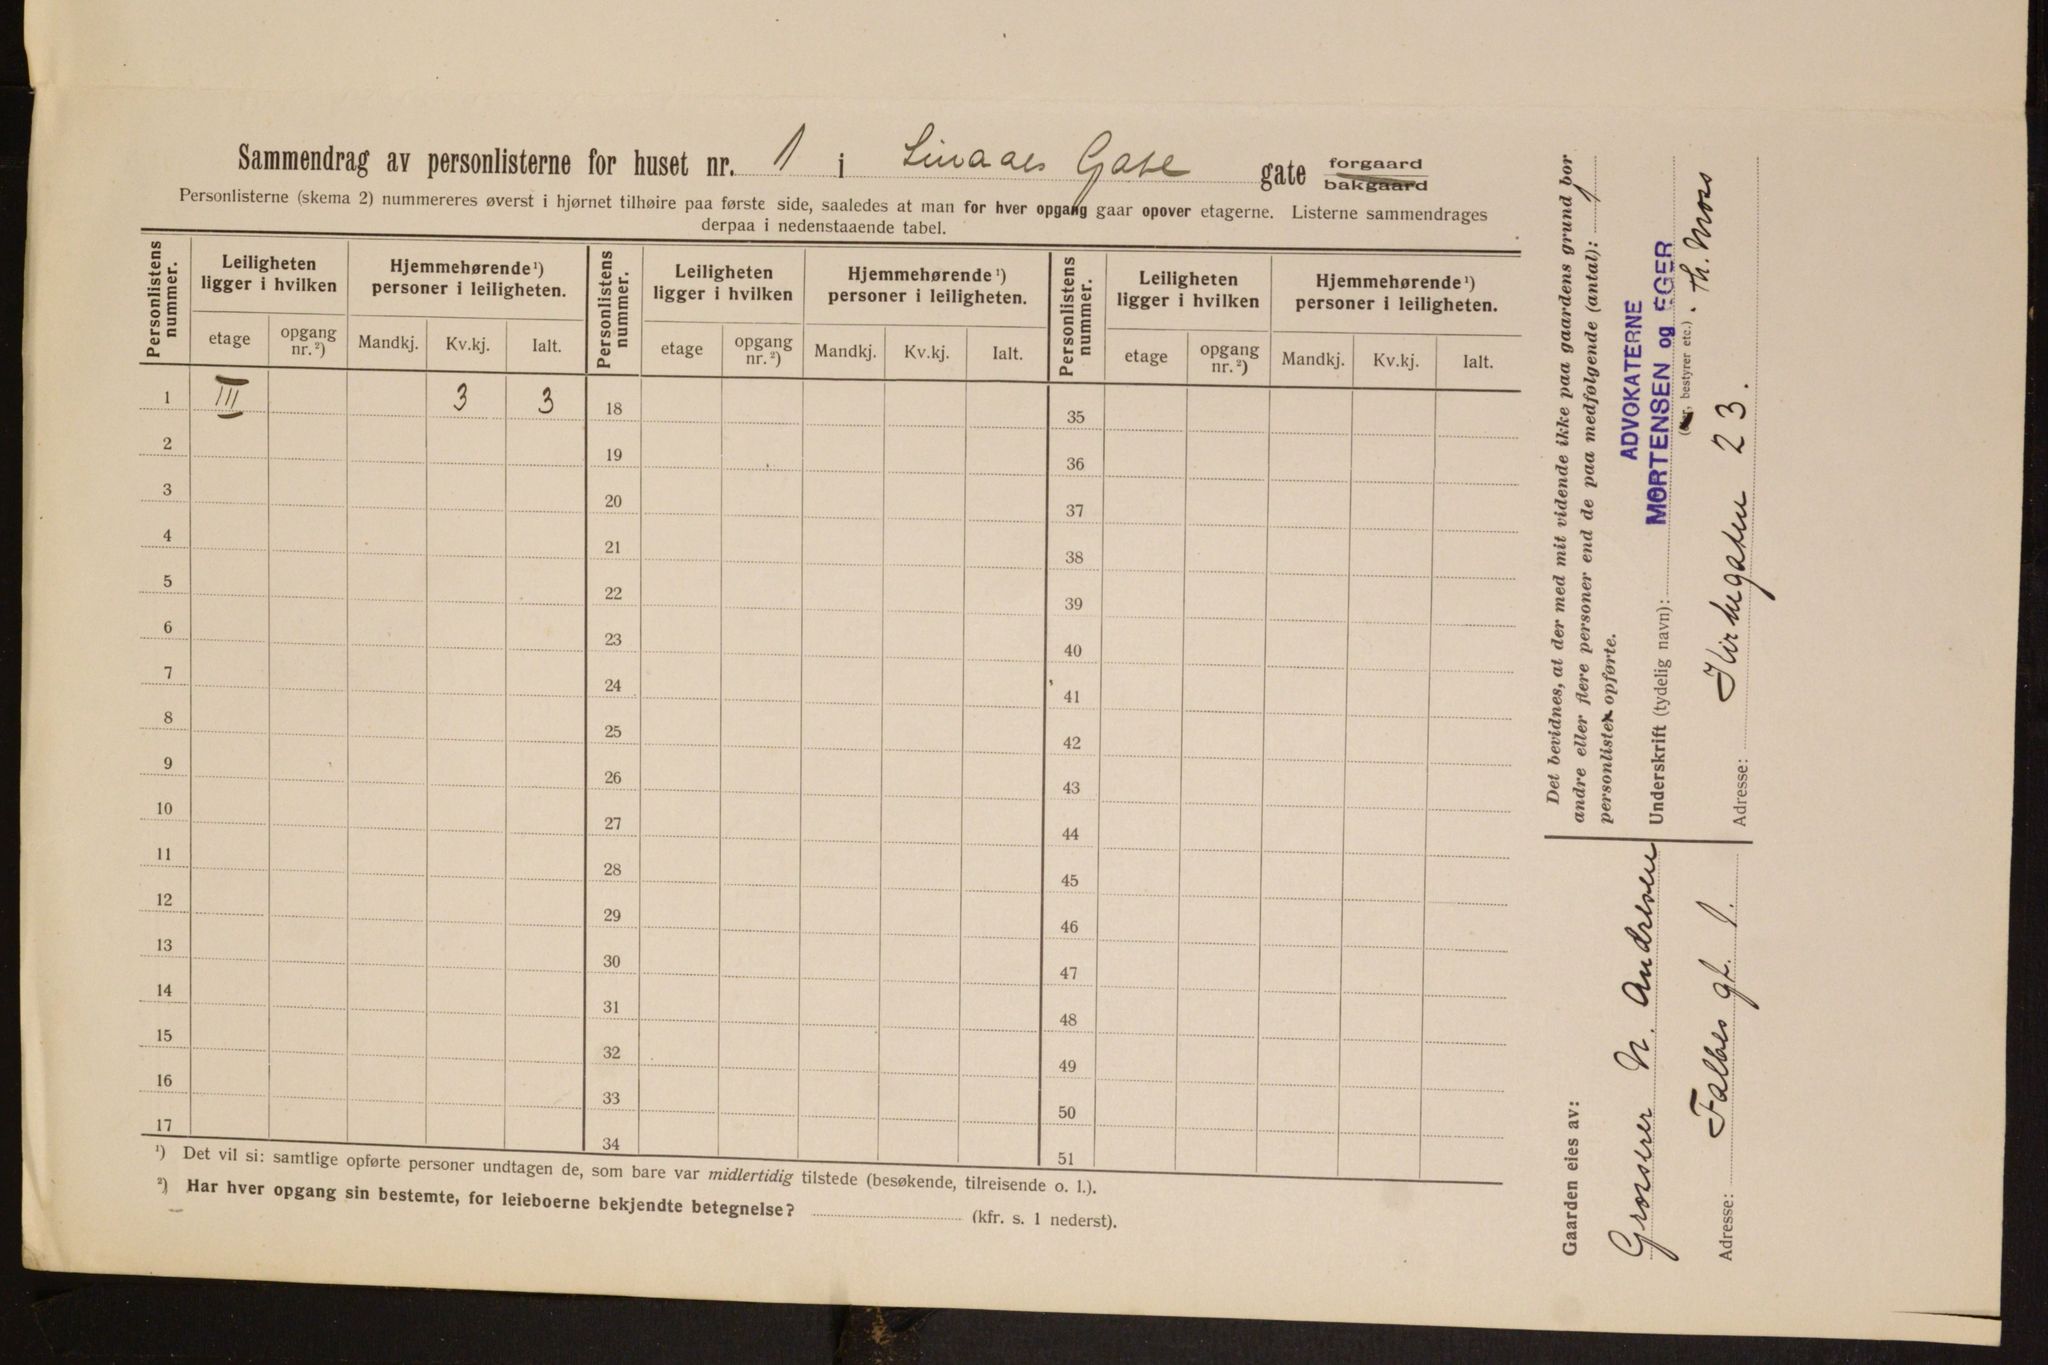 Sammendrag av personlisterne for huset nr. 1 i Linaaes Gate gate forgaard
bakgaard
Personlisterne (skema 2) nummereres øverst i hjørnet tilhøire paa første side, saaledes at man for hver opgang gaar opover etagerne. Listerne sammendrages
derpaa i nedenstaaende tabel.
Personlistens nummer. Leiligheten ligger i hvilken Hjemmehørende¹) personer i leiligheten. Personlistens nummer. Leiligheten ligger i hvilken Hjemmehørende¹) personer i leiligheten. Personlistens nummer. Leiligheten ligger i hvilken Hjemmehørende¹) personer i leiligheten.
etage opgang nr.²) Mandkj. Kv.kj. Ialt. etage opgang nr.²) Mandkj. Kv.kj. Ialt. etage opgang nr.²) Mandkj. Kv.kj. Ialt.
1 III 3 3 18 35
2 19 36
3 20 37
4 21 38
5 22 39
6 23 40
7 24 41
8 25 42
9 26 43
10 27 44
11 28 45
12 29 46
13 30 47
14 31 48
15 32 49
16 33 50
17 34 51
¹) Det vil si: samtlige opførte personer undtagen de, som bare var midlertidig tilstede (besøkende, tilreisende o. l.).
²) Har hver opgang sin bestemte, for leieboerne bekjendte betegnelse? (kfr. s. 1 nederst).
Det bevidnes, at der med mit vidende ikke paa gaardens grund bor
andre eller flere personer end de paa medfølgende (antal): 1
personlister opførte.
ADVOKATERNE
Underskrift (tydelig navn): MORTENSEN og EGER
(eier, bestyrer etc.). Th. Moss
Adresse: Kirkegaten 23.
Gaarden eies av:
Grosserer N. Andresen
Adresse: Falbes gt. 1.